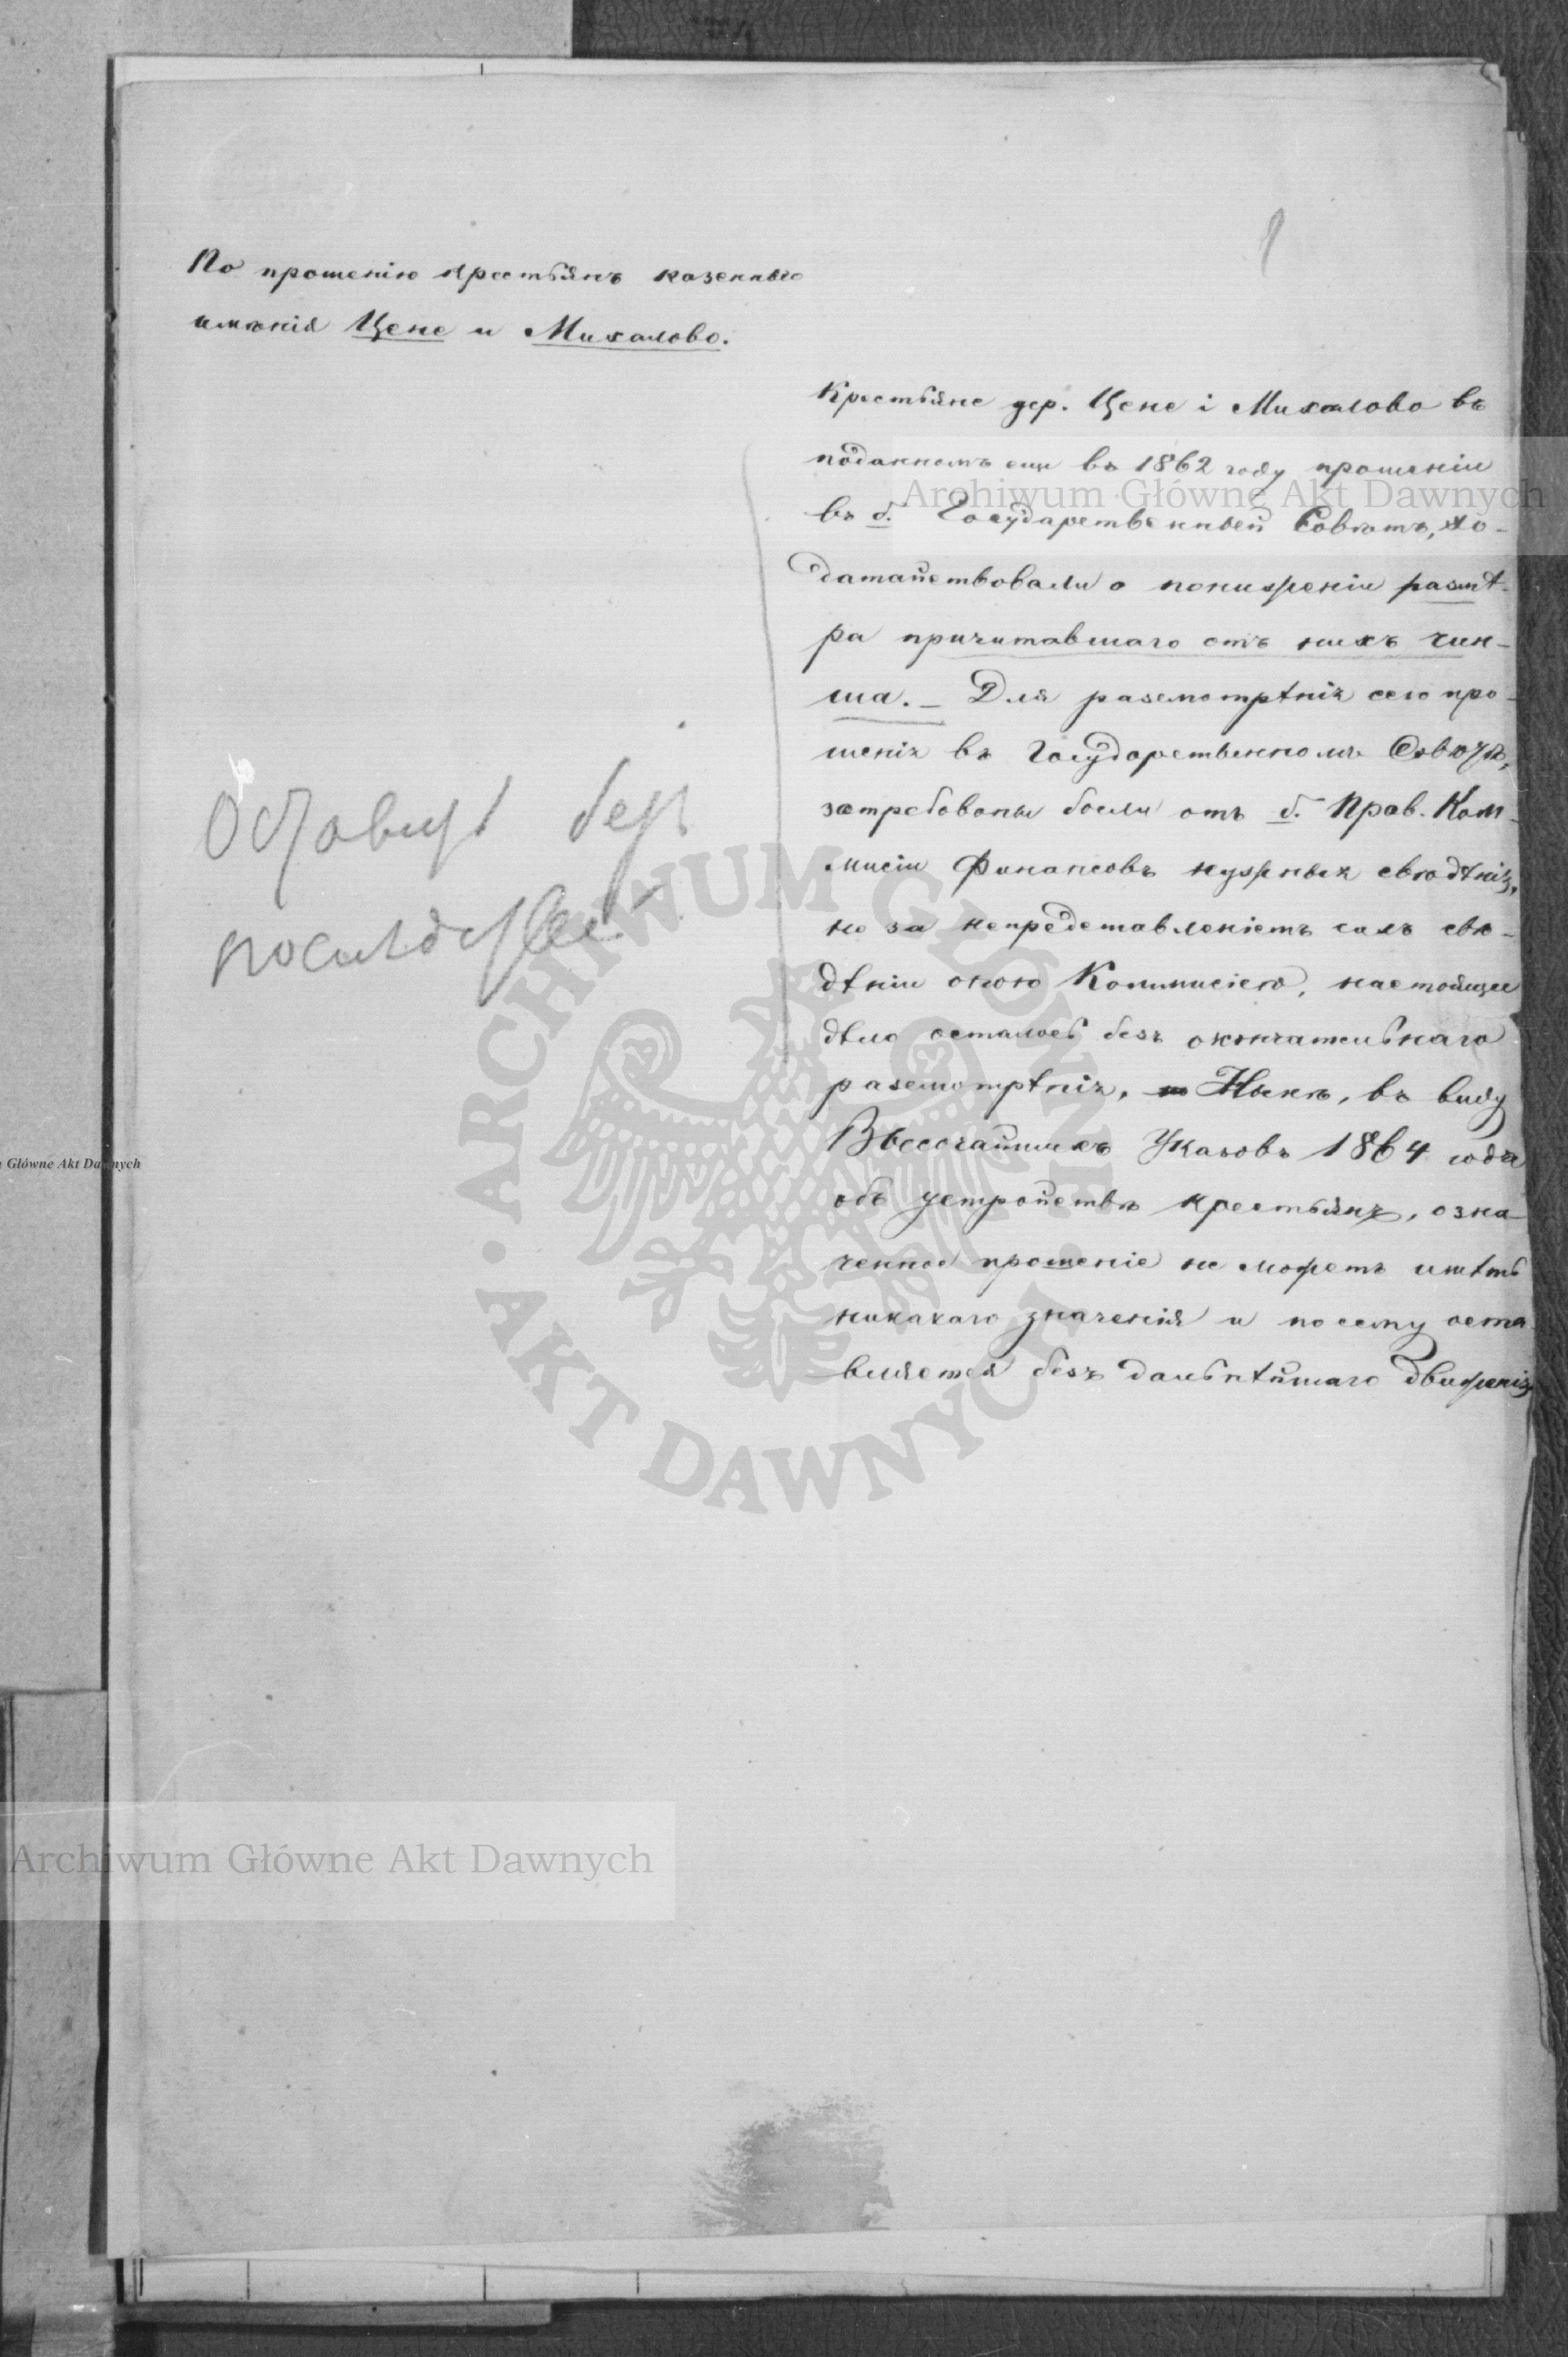 1
По прошенію крестьянъ казеннаго
имѣнія Цене и Михалово.
Крестьяне дер. Цене і Михалово въ
поданномъ еще въ 1862 году прошеніи
въ б. Государственный Совѣтъ, хо-
датайствовали о пониженіи размѣ-
ра причитавшаго отъ нихъ чин-
ша. — Для разсмотрѣнія сего про-
шенія въ Государственномъ Совѣтѣ,
затребованы были отъ б. Прав. Ком-
мисіи Финансовъ нужныя свѣдѣнія,
но за непредставленіемъ сихъ свѣ-
дѣніи оною Коммисіею, настоящее
дѣло осталось безъ окончательнаго
разсмотрѣнія. Нынѣ, въ виду
Высочайшихъ Указовъ 1864 года
объ устройствѣ крестьянъ, озна-
ченное прошеніе не можетъ имѣть
никакаго значенія и по сему оста-
вляется безъ дальнѣйшаго движенія
Оставить безъ
послѣдствій
Archiwum Główne Akt Dawnych
Główne Akt Dawnych
ARCHIWUM GŁÓWNE · AKT DAWNYCH ·
Archiwum Główne Akt Dawnych